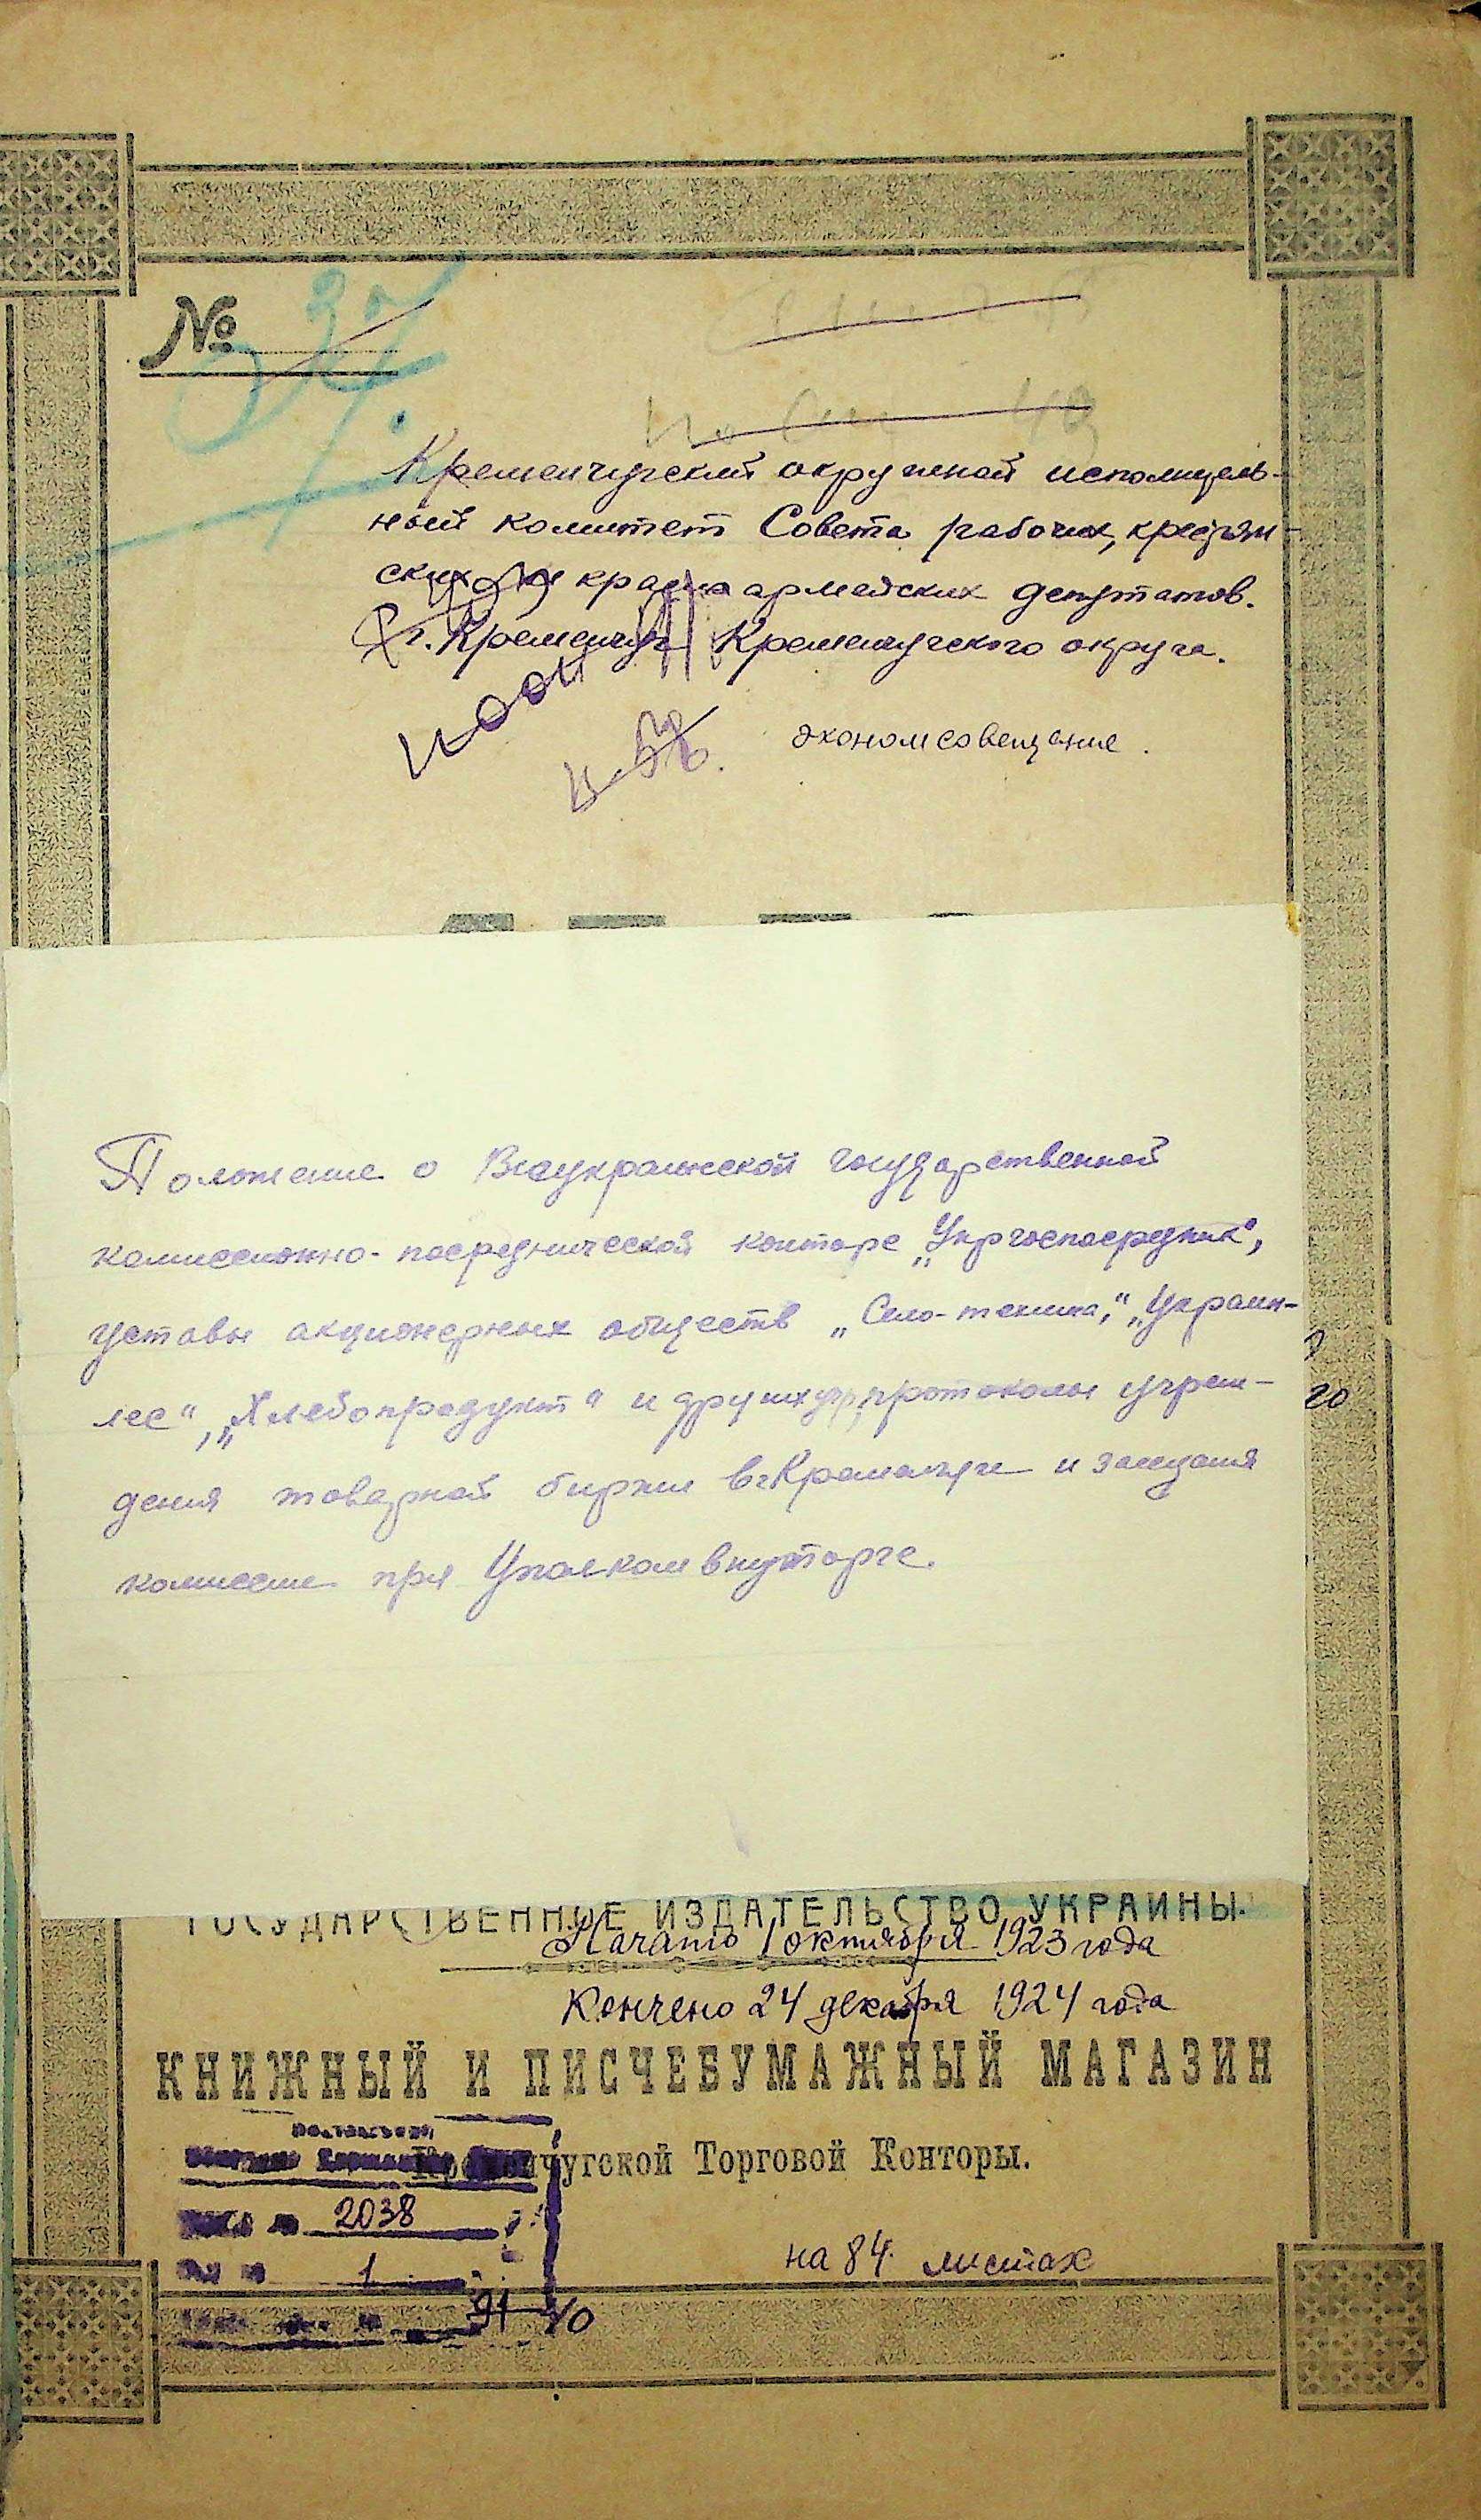 №
Кременчугский окружной исполнитель-
ный комитет Совета рабочих, крестьян-
ских и красноармейских депутатов.
г. Кременчуг Кременчугского округа.
экономсовещание.
Положение о Всеукраинской государственной
комиссионно-посреднической конторе „Укргоспосредник“,
уставы акционерных обществ „Село-техника“, „Украин-
лес“, „Хлебопродукт“ и других, протоколы учреж-
дения товарной биржи в г. Кременчуге и заседания
комиссии при Уполкомвнуторге.
го
ГОСУДАРСТВЕННОЕ ИЗДАТЕЛЬСТВО УКРАИНЫ.
Начато 1 октября 1923 года
Кончено 24 декабря 1924 года
КНИЖНЫЙ И ПИСЧЕБУМАЖНЫЙ МАГАЗИН
Кременчугской Торговой Конторы.
2038
на 84 листах
1
91 40